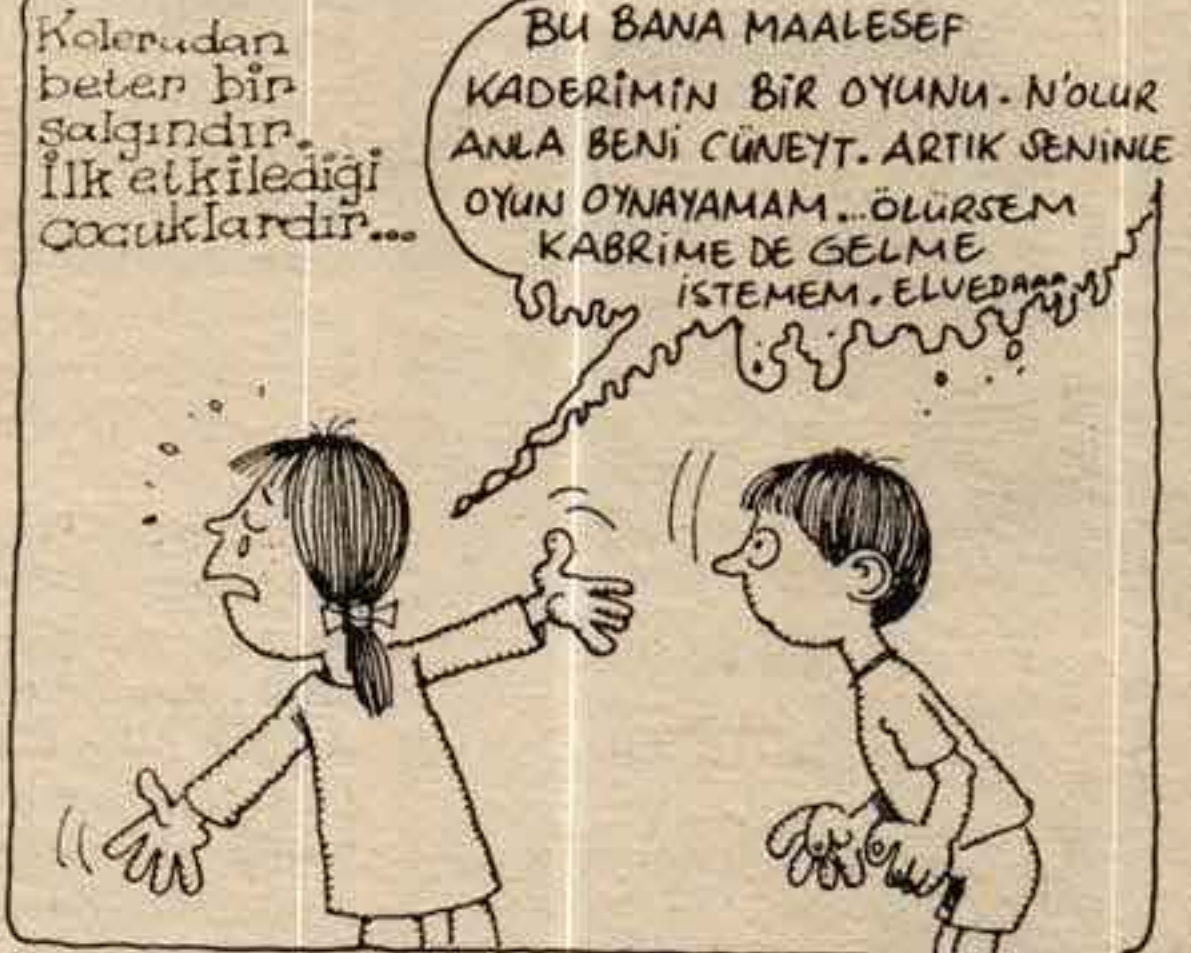 Koleradan
beter bir
salgındır.
İlk etkilediği
çocuklardır...
BU BANA MAALESEF
KADERİMİN BİR OYUNU. N'OLUR
ANLA BENİ CÜNEYT. ARTIK SENİNLE
OYUN OYNAYAMAM... ÖLÜRSEM
KABRİME DE GELME
İSTEMEM. ELVEDAAA